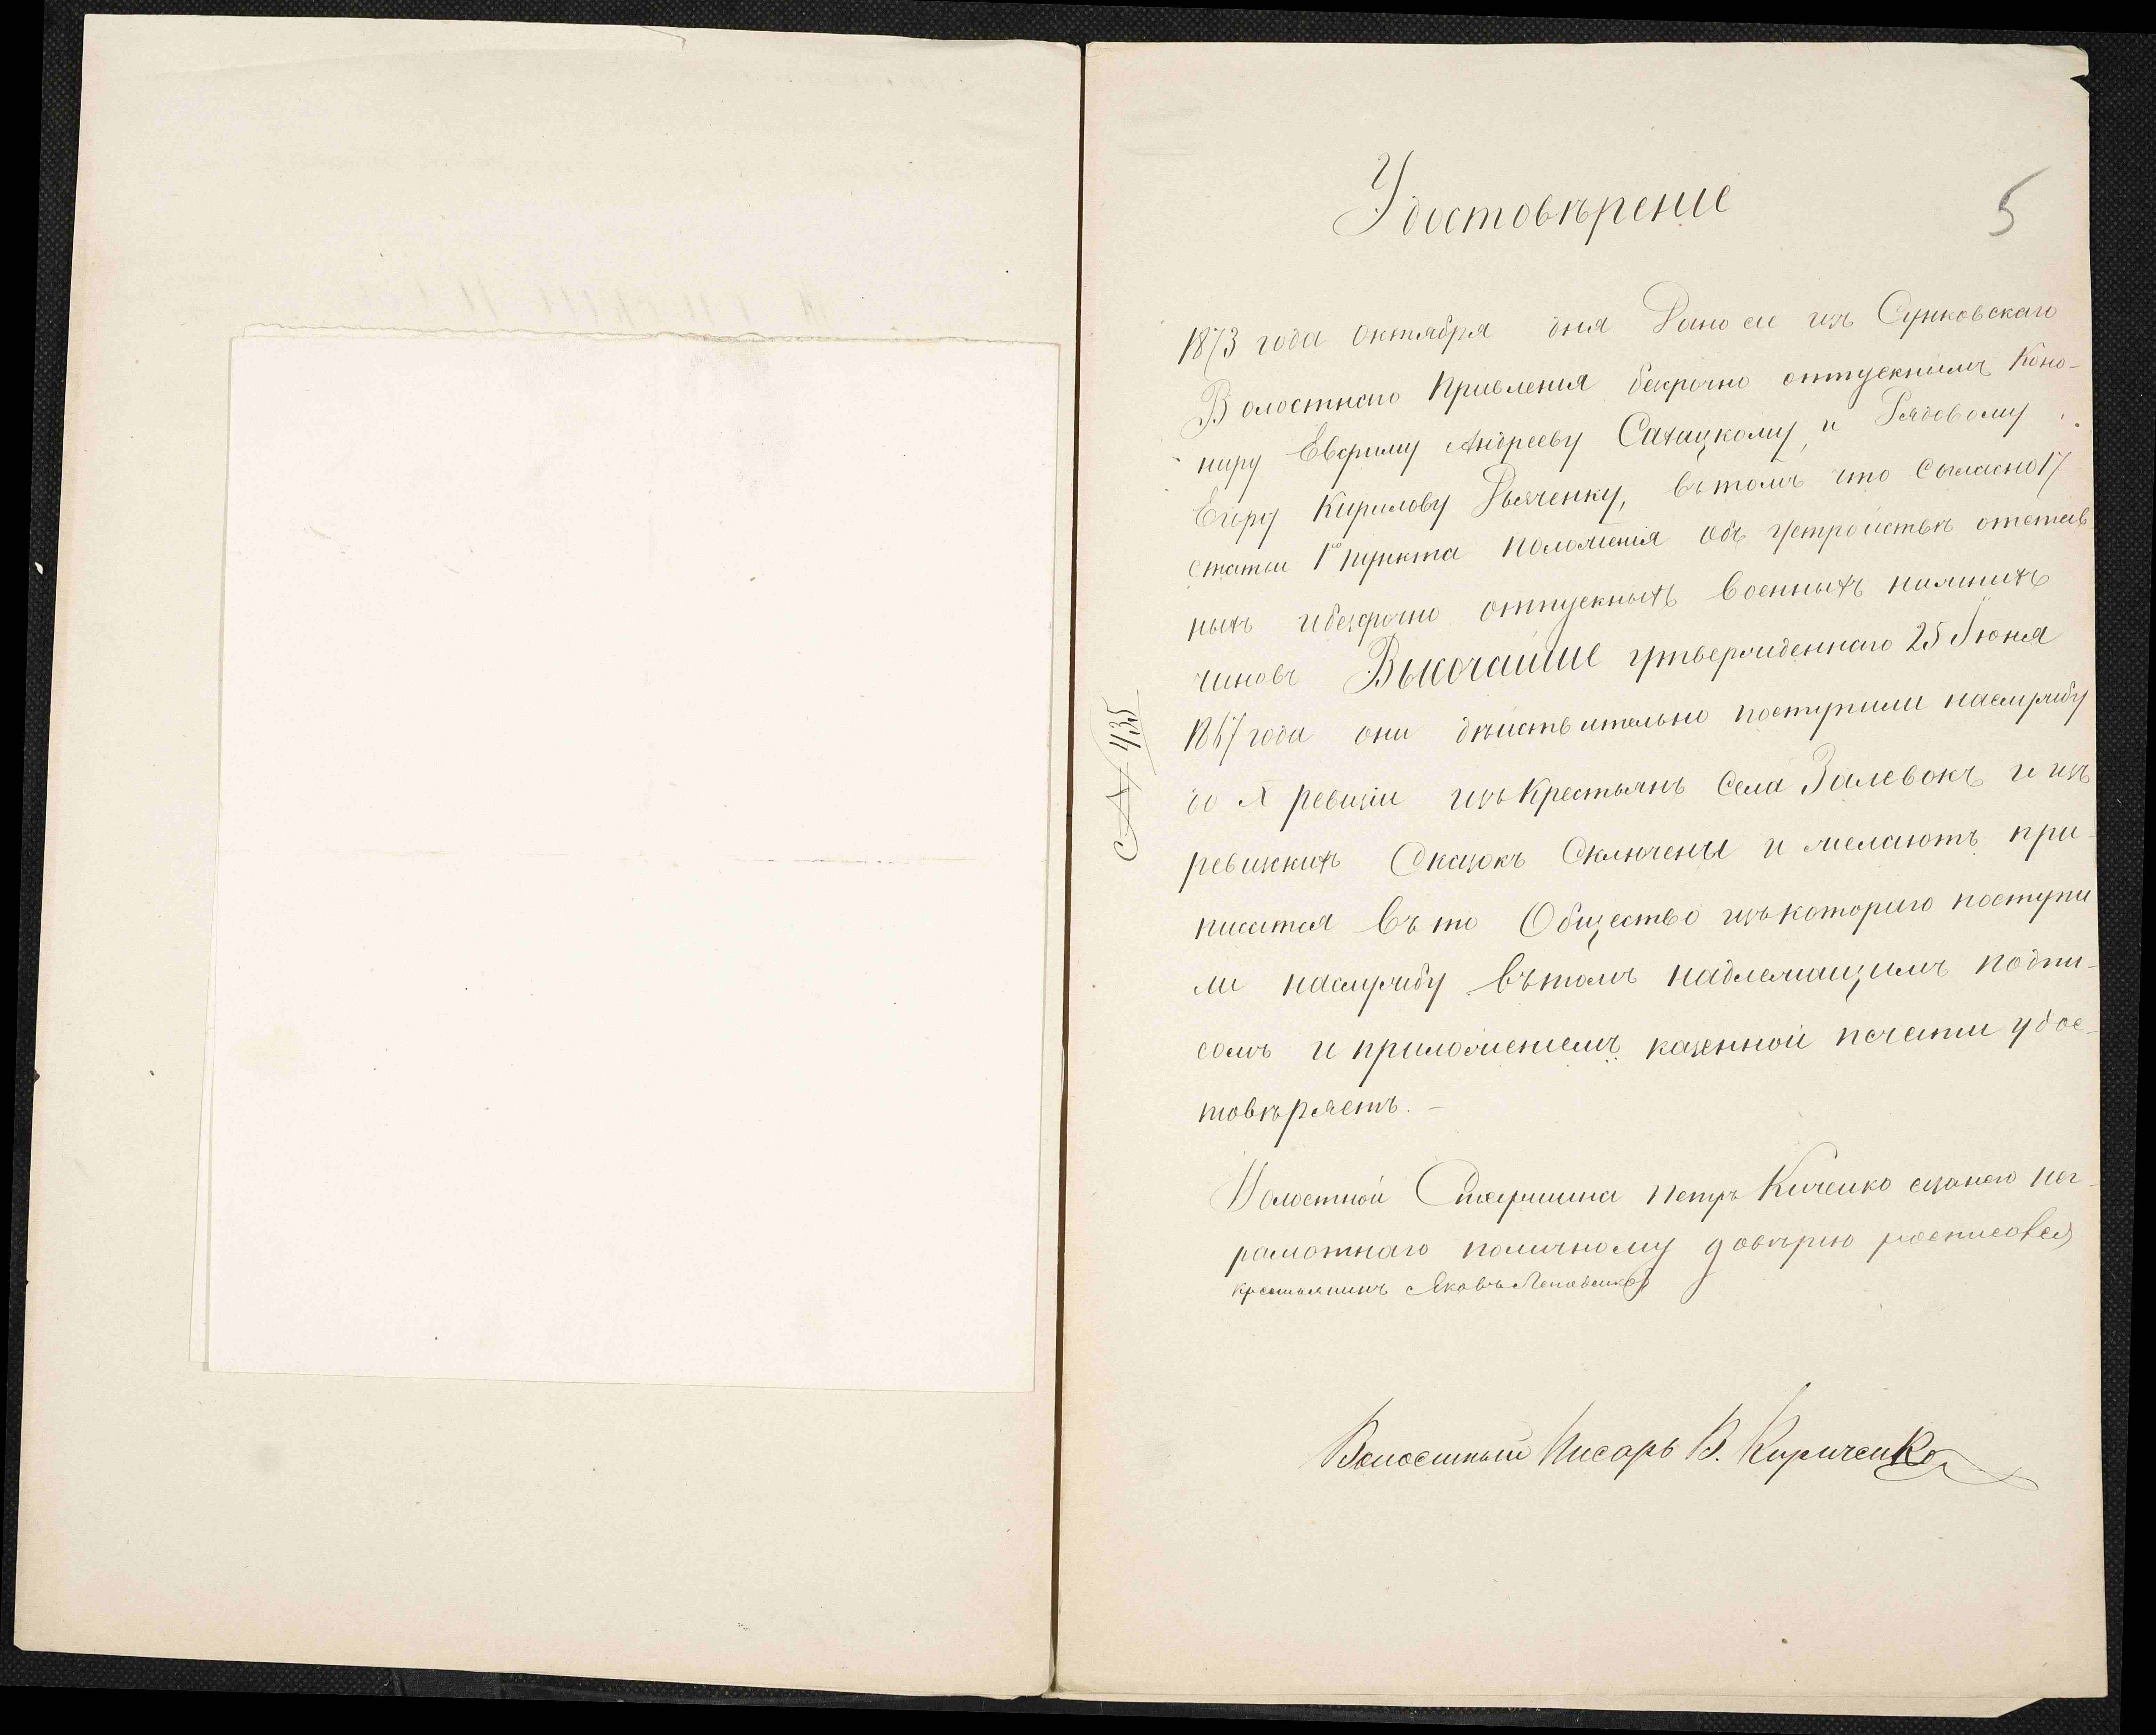 5
Удостовѣрение
1873 года Октября дня Дано сие изъ Сунковскаго
Волостнаго Правления безсрочно отпускнымъ Кано-
ниру Евфиму Андрееву Сахацкому, и Рядовому
Егору Кирилову Дьяченку, вътомъ что Согласно 17
статьи 1го пункта положенія объ устройствѣ отстав
ныхъ ибезсрочно отпускныхъ военныхъ нижнихъ
чиновъ Высочайше утвержденнаго 25 Іюня
1867 года они дѣйствительно поступили наслужбу
до X ревизіи изъ Крестьянъ Села Залевокъ и изъ
ревизкихъ Сказокъ Сключены и желаютъ при-
писатся въ то Общество изъ котораго поступи
ли наслужбу вътомъ надлежащимъ подпи-
сомъ и приложениемъ казенной печати удос-
товѣряетъ. -
Волостной Старшина Петръ Киченко азанего нег-
рамотнаго поличному довѣрію росписовся
крестьянинъ Яковъ
Волостный Писарь В. Кириченко
№ 435